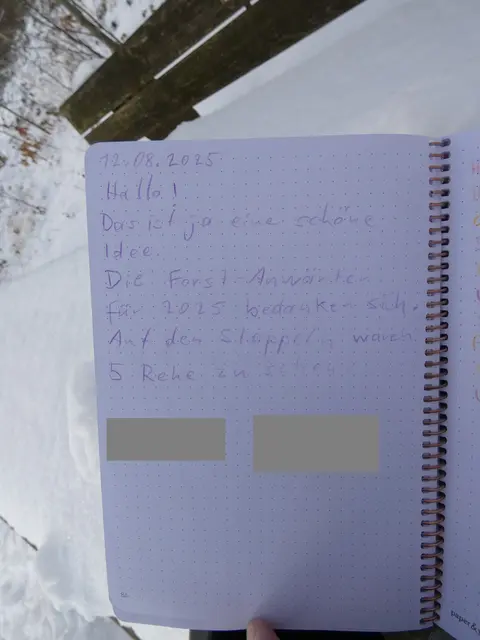 12.08.2025
Hallo!
Das ist ja eine schöne
Idee.
Die Forst-Anwärter
für 2025 bedanken sich.
Auf den Stoppeln waren
5 Rehe zu sehen